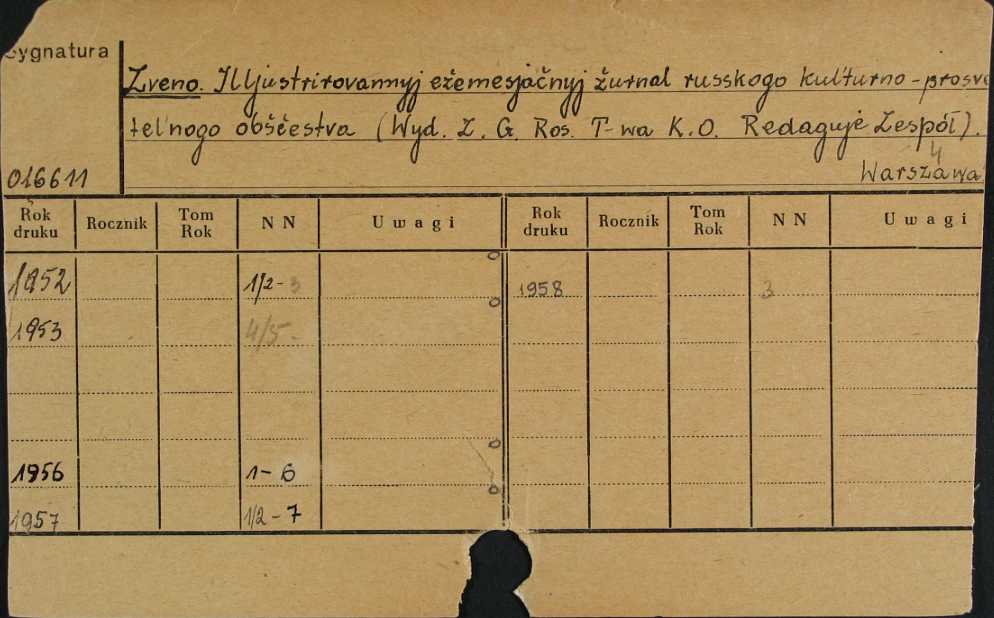 Sygnatura
Zveno. Illjustrirovannyj ežemesjačnyj žurnal russkogo kul'turno-prosve
tel'nogo obščestva (Wyd. Z. G. Ros. T-wa K.O. Redaguje Zespół).
4
016611 Warszawa
Rok druku Rocznik Tom Rok NN Uwagi Rok druku Rocznik Tom Rok NN Uwagi
1952 1/2-3 1958 3
1953 4/5-
1956 1-6
1957 1/2-7